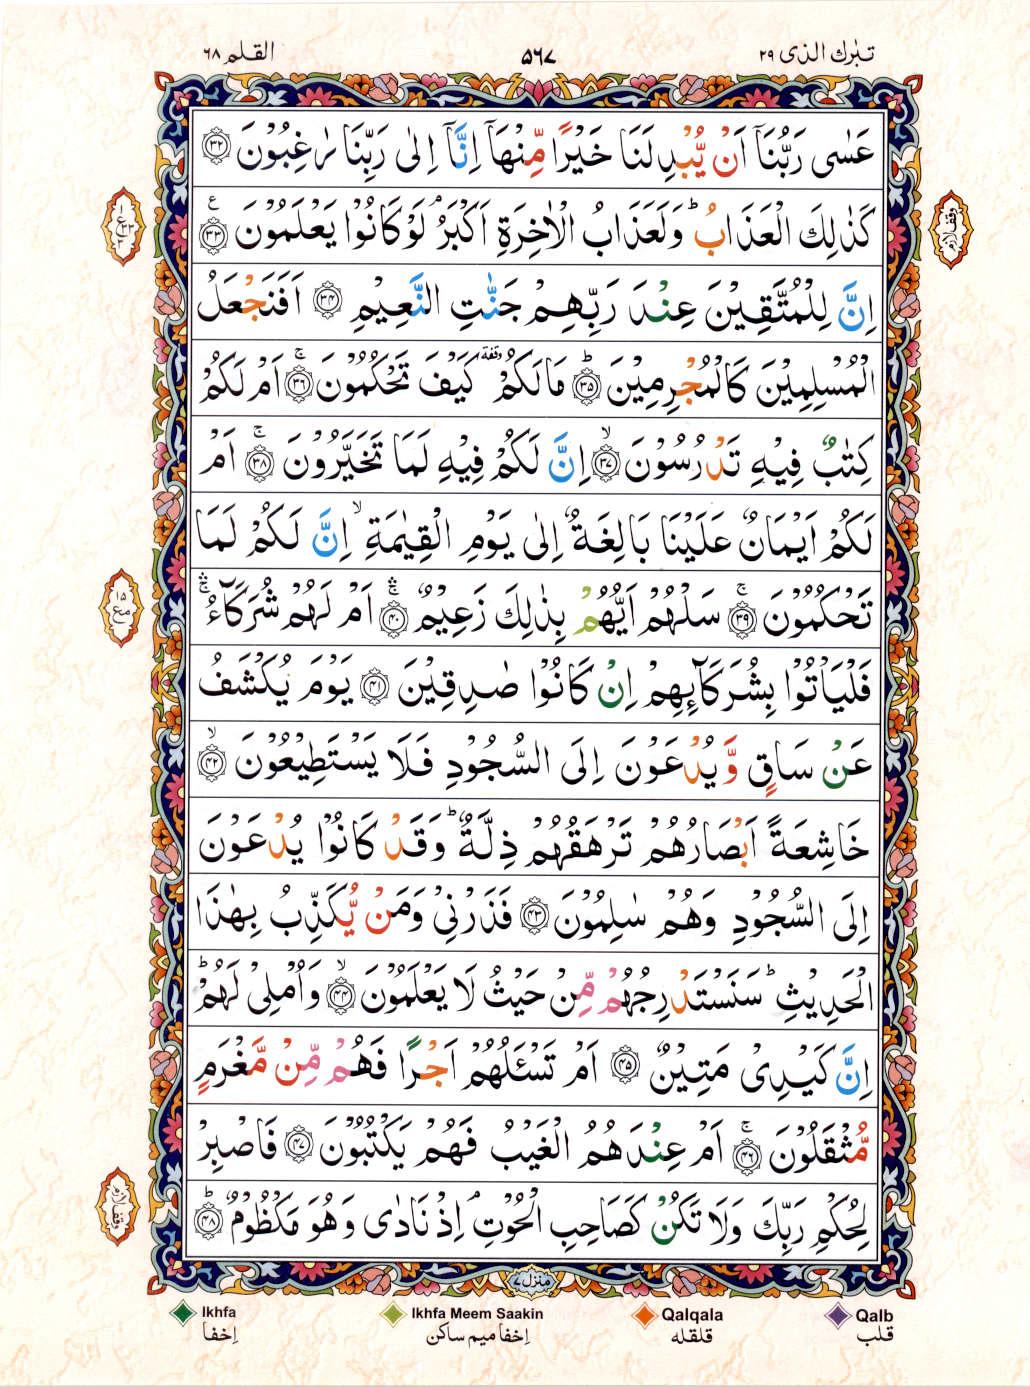 تبٰرك الذی ٢٩
۵٦٧
القلم ٦٨
عَسٰى رَبُّنَاۤ اَنْ يُّبْدِلَنَا خَيْرًا مِّنْهَاۤ اِنَّاۤ اِلٰى رَبِّنَا رٰغِبُوْنَ ﴿٣٢﴾
كَذٰلِكَ الْعَذَابُ ؕ وَلَعَذَابُ الْاٰخِرَةِ اَكْبَرُ ۘ لَوْ كَانُوْا يَعْلَمُوْنَ ﴿٣٣﴾ ع
اِنَّ لِلْمُتَّقِيْنَ عِنْدَ رَبِّهِمْ جَنّٰتِ النَّعِيْمِ ﴿٣٤﴾ اَفَنَجْعَلُ
الْمُسْلِمِيْنَ كَالْمُجْرِمِيْنَ ؕ ﴿٣٥﴾ مَا لَكُمْ وقفة كَيْفَ تَحْكُمُوْنَ ۚ ﴿٣٦﴾ اَمْ لَكُمْ
كِتٰبٌ فِيْهِ تَدْرُسُوْنَ ۙ ﴿٣٧﴾ اِنَّ لَكُمْ فِيْهِ لَمَا تَخَيَّرُوْنَ ۚ ﴿٣٨﴾ اَمْ
لَكُمْ اَيْمَانٌ عَلَيْنَا بَالِغَةٌ اِلٰى يَوْمِ الْقِيٰمَةِ ۙ اِنَّ لَكُمْ لَمَا
تَحْكُمُوْنَ ۚ ﴿٣٩﴾ سَلْهُمْ اَيُّهُمْ بِذٰلِكَ زَعِيْمٌ ۚۛ ﴿٤٠﴾ اَمْ لَهُمْ شُرَكَآءُ ۚۛ
فَلْيَاْتُوْا بِشُرَكَآئِهِمْ اِنْ كَانُوْا صٰدِقِيْنَ ﴿٤١﴾ يَوْمَ يُكْشَفُ
عَنْ سَاقٍ وَّيُدْعَوْنَ اِلَى السُّجُوْدِ فَلَا يَسْتَطِيْعُوْنَ ۙ ﴿٤٢﴾
خَاشِعَةً اَبْصَارُهُمْ تَرْهَقُهُمْ ذِلَّةٌ ؕ وَقَدْ كَانُوْا يُدْعَوْنَ
اِلَى السُّجُوْدِ وَهُمْ سٰلِمُوْنَ ﴿٤٣﴾ فَذَرْنِيْ وَمَنْ يُّكَذِّبُ بِهٰذَا
الْحَدِيْثِ ؕ سَنَسْتَدْرِجُهُمْ مِّنْ حَيْثُ لَا يَعْلَمُوْنَ ۙ ﴿٤٤﴾ وَاُمْلِيْ لَهُمْ ؕ
اِنَّ كَيْدِيْ مَتِيْنٌ ﴿٤٥﴾ اَمْ تَسْـَٔلُهُمْ اَجْرًا فَهُمْ مِّنْ مَّغْرَمٍ
مُّثْقَلُوْنَ ۚ ﴿٤٦﴾ اَمْ عِنْدَهُمُ الْغَيْبُ فَهُمْ يَكْتُبُوْنَ ﴿٤٧﴾ فَاصْبِرْ
لِحُكْمِ رَبِّكَ وَلَا تَكُنْ كَصَاحِبِ الْحُوْتِ ۘ اِذْ نَادٰى وَهُوَ مَكْظُوْمٌ ؕ ﴿٤٨﴾
وقف لازم
١٥
مع
وقف لازم
منزل ٧
Ikhfa
Ikhfa Meem Saakin
Qalqala
Qalb
اِخفا
اِخفا میم ساکن
قلقله
قلب